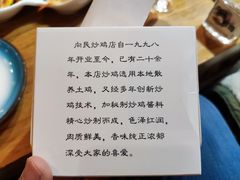 向民炒鸡店自一九九八
年开业至今，已有二十余
年，本店炒鸡选用本地散
养土鸡，又经多年创新炒
鸡技术，加秘制炒鸡酱料
精心炒制而成，色泽红润，
肉质鲜美，香味纯正浓郁
深受大家的喜爱。